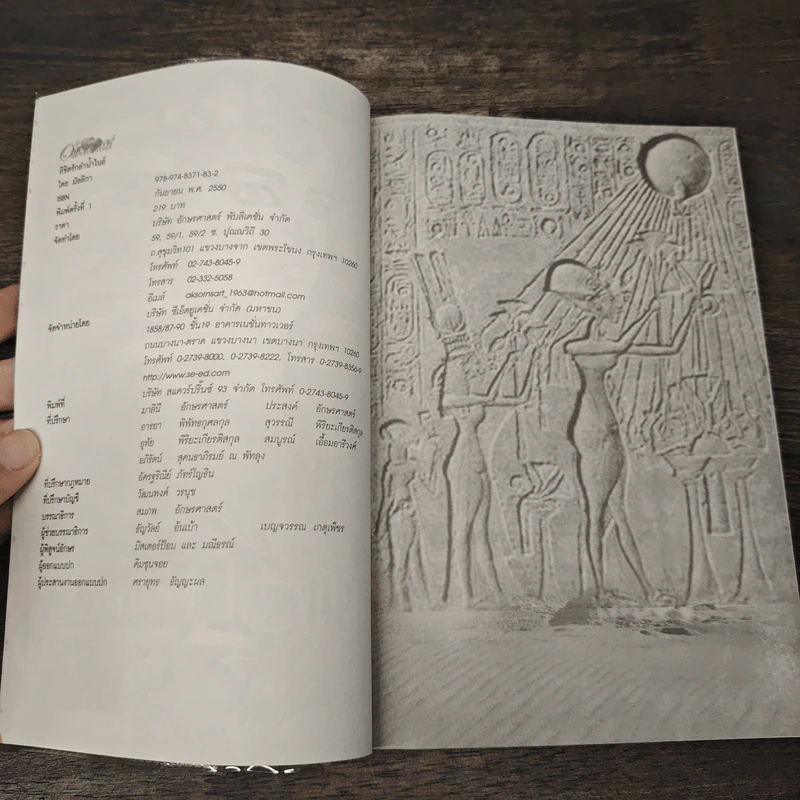 ลิขิตรักลำน้ำไนล์
โดย มัลลิกา
ISBN 978-974-8371-83-2
พิมพ์ครั้งที่ 1 กันยายน พ.ศ. 2550
ราคา 219 บาท
จัดทำโดย บริษัท อักษรศาสตร์ พับลิเคชั่น จำกัด
59, 59/1, 59/2 ซ. ปุณณวิถี 30
ถ.สุขุมวิท101 แขวงบางจาก เขตพระโขนง กรุงเทพฯ 10260
โทรศัพท์ 02-743-8045-9
โทรสาร 02-332-5058
อีเมล์ aksornsart_1963@hotmail.com
จัดจำหน่ายโดย บริษัท ซีเอ็ดยูเคชั่น จำกัด (มหาชน)
1858/87-90 ชั้น19 อาคารเนชั่นทาวเวอร์
ถนนบางนา-ตราด แขวงบางนา เขตบางนา กรุงเทพฯ 10260
โทรศัพท์ 0-2739-8000, 0-2739-8222, โทรสาร 0-2739-8356-9
http://www.se-ed.com
พิมพ์ที่ บริษัท สแควร์ปริ๊นซ์ 93 จำกัด โทรศัพท์ 0-2743-8045-9
ที่ปรึกษา มาลินี อักษรศาสตร์ ประสงค์ อักษรศาสตร์
อารยา พิพัทธกุศลกุล สุวรรณี พิริยะเกียรติสกุล
อุทัย พิริยะเกียรติสกุล สมบูรณ์ เอื้ออมารีวงค์
อภิรัตน์ สุคนธาภิรมย์ ณ พัทลุง
ที่ปรึกษากฎหมาย อัครฐริณีย์ ภัทร์โญธิน
ที่ปรึกษาบัญชี วัฒนพงค์ วรนุช
บรรณาธิการ สมภพ อักษรศาสตร์
ผู้ช่วยบรรณาธิการ ธัญวัลย์ อ้นเบ้า เบญจวรรณ เกตุเพ็ชร
ผู้พิสูจน์อักษร มิสเตอร์ป๊อบ และ มณีอรณ์
ผู้ออกแบบปก คิมซุนจอย
ผู้ประสานงานออกแบบปก ศรายุทธ ธัญญะผล